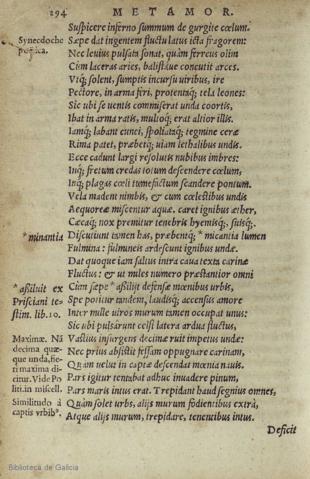 294 METAMOR.
Suspicere inferno summum de gurgite cœlum.
Synecdoche poetica.
Sæpe dat ingentem fluctu latus icta fragorem:
Nec leuius pulsata sonat, quàm ferreus olim
Cùm laceras aries, balistáue concutit arces.
Vtq́; solent, sumptis incursu uiribus, ire
Pectore, in arma feri, protentaq́; tela leones:
Sic ubi se uentis commiserat unda coortis,
Ibat in arma ratis, multoq́; erat altior illis.
Iamq́; labant cunei, spoliataq́; tegmine ceræ
Rima patet, præbetq́; uiam lethalibus undis.
Ecce cadunt largi resolutis nubibus imbres:
Inq́; fretum credas totum descendere cœlum,
Inq́; plagas cœli tumefactum scandere pontum.
Vela madent nimbis, & cum cœlestibus undis
Aequoreæ miscentur aquæ. caret ignibus æther,
Cæcaq́; nox premitur tenebris hyemisq́;, suisq́;.
* minantia
Discutiunt tamen has, præbentq́; * micantia lumen
Fulmina: fulmineis ardescunt ignibus undæ.
Dat quoque iam saltus intra caua texta carinæ
Fluctus: & ut miles numero præstantior omni
* assiluit ex Prisciani testim. lib. 10.
Cùm sæpe * assilijt defensæ mœnibus urbis,
Spe potitur tandem, laudisq́; accensus amore
Inter mille uiros murum tamen occupat unus:
Sic ubi pulsârunt celsi latera ardua fluctus,
Maximæ. Nã decima quæque unda, fieri maxima dicitur. Vide Polit. in miscell.
Vastius insurgens decimæ ruit impetus undæ:
Nec prius absistit fessam oppugnare carinam,
Quàm uelut in captæ descendat mœnia nauis.
Pars igitur tentabat adhuc inuadere pinum,
Pars maris intus erat. Trepidant haud segnius omnes,
Similitudo à captis vrbib⁹.
Quàm solet urbs, alijs murum fodientibus extrà,
Atque alijs murum, trepidare, tenentibus intus.
Deficit
Biblioteca de Galicia